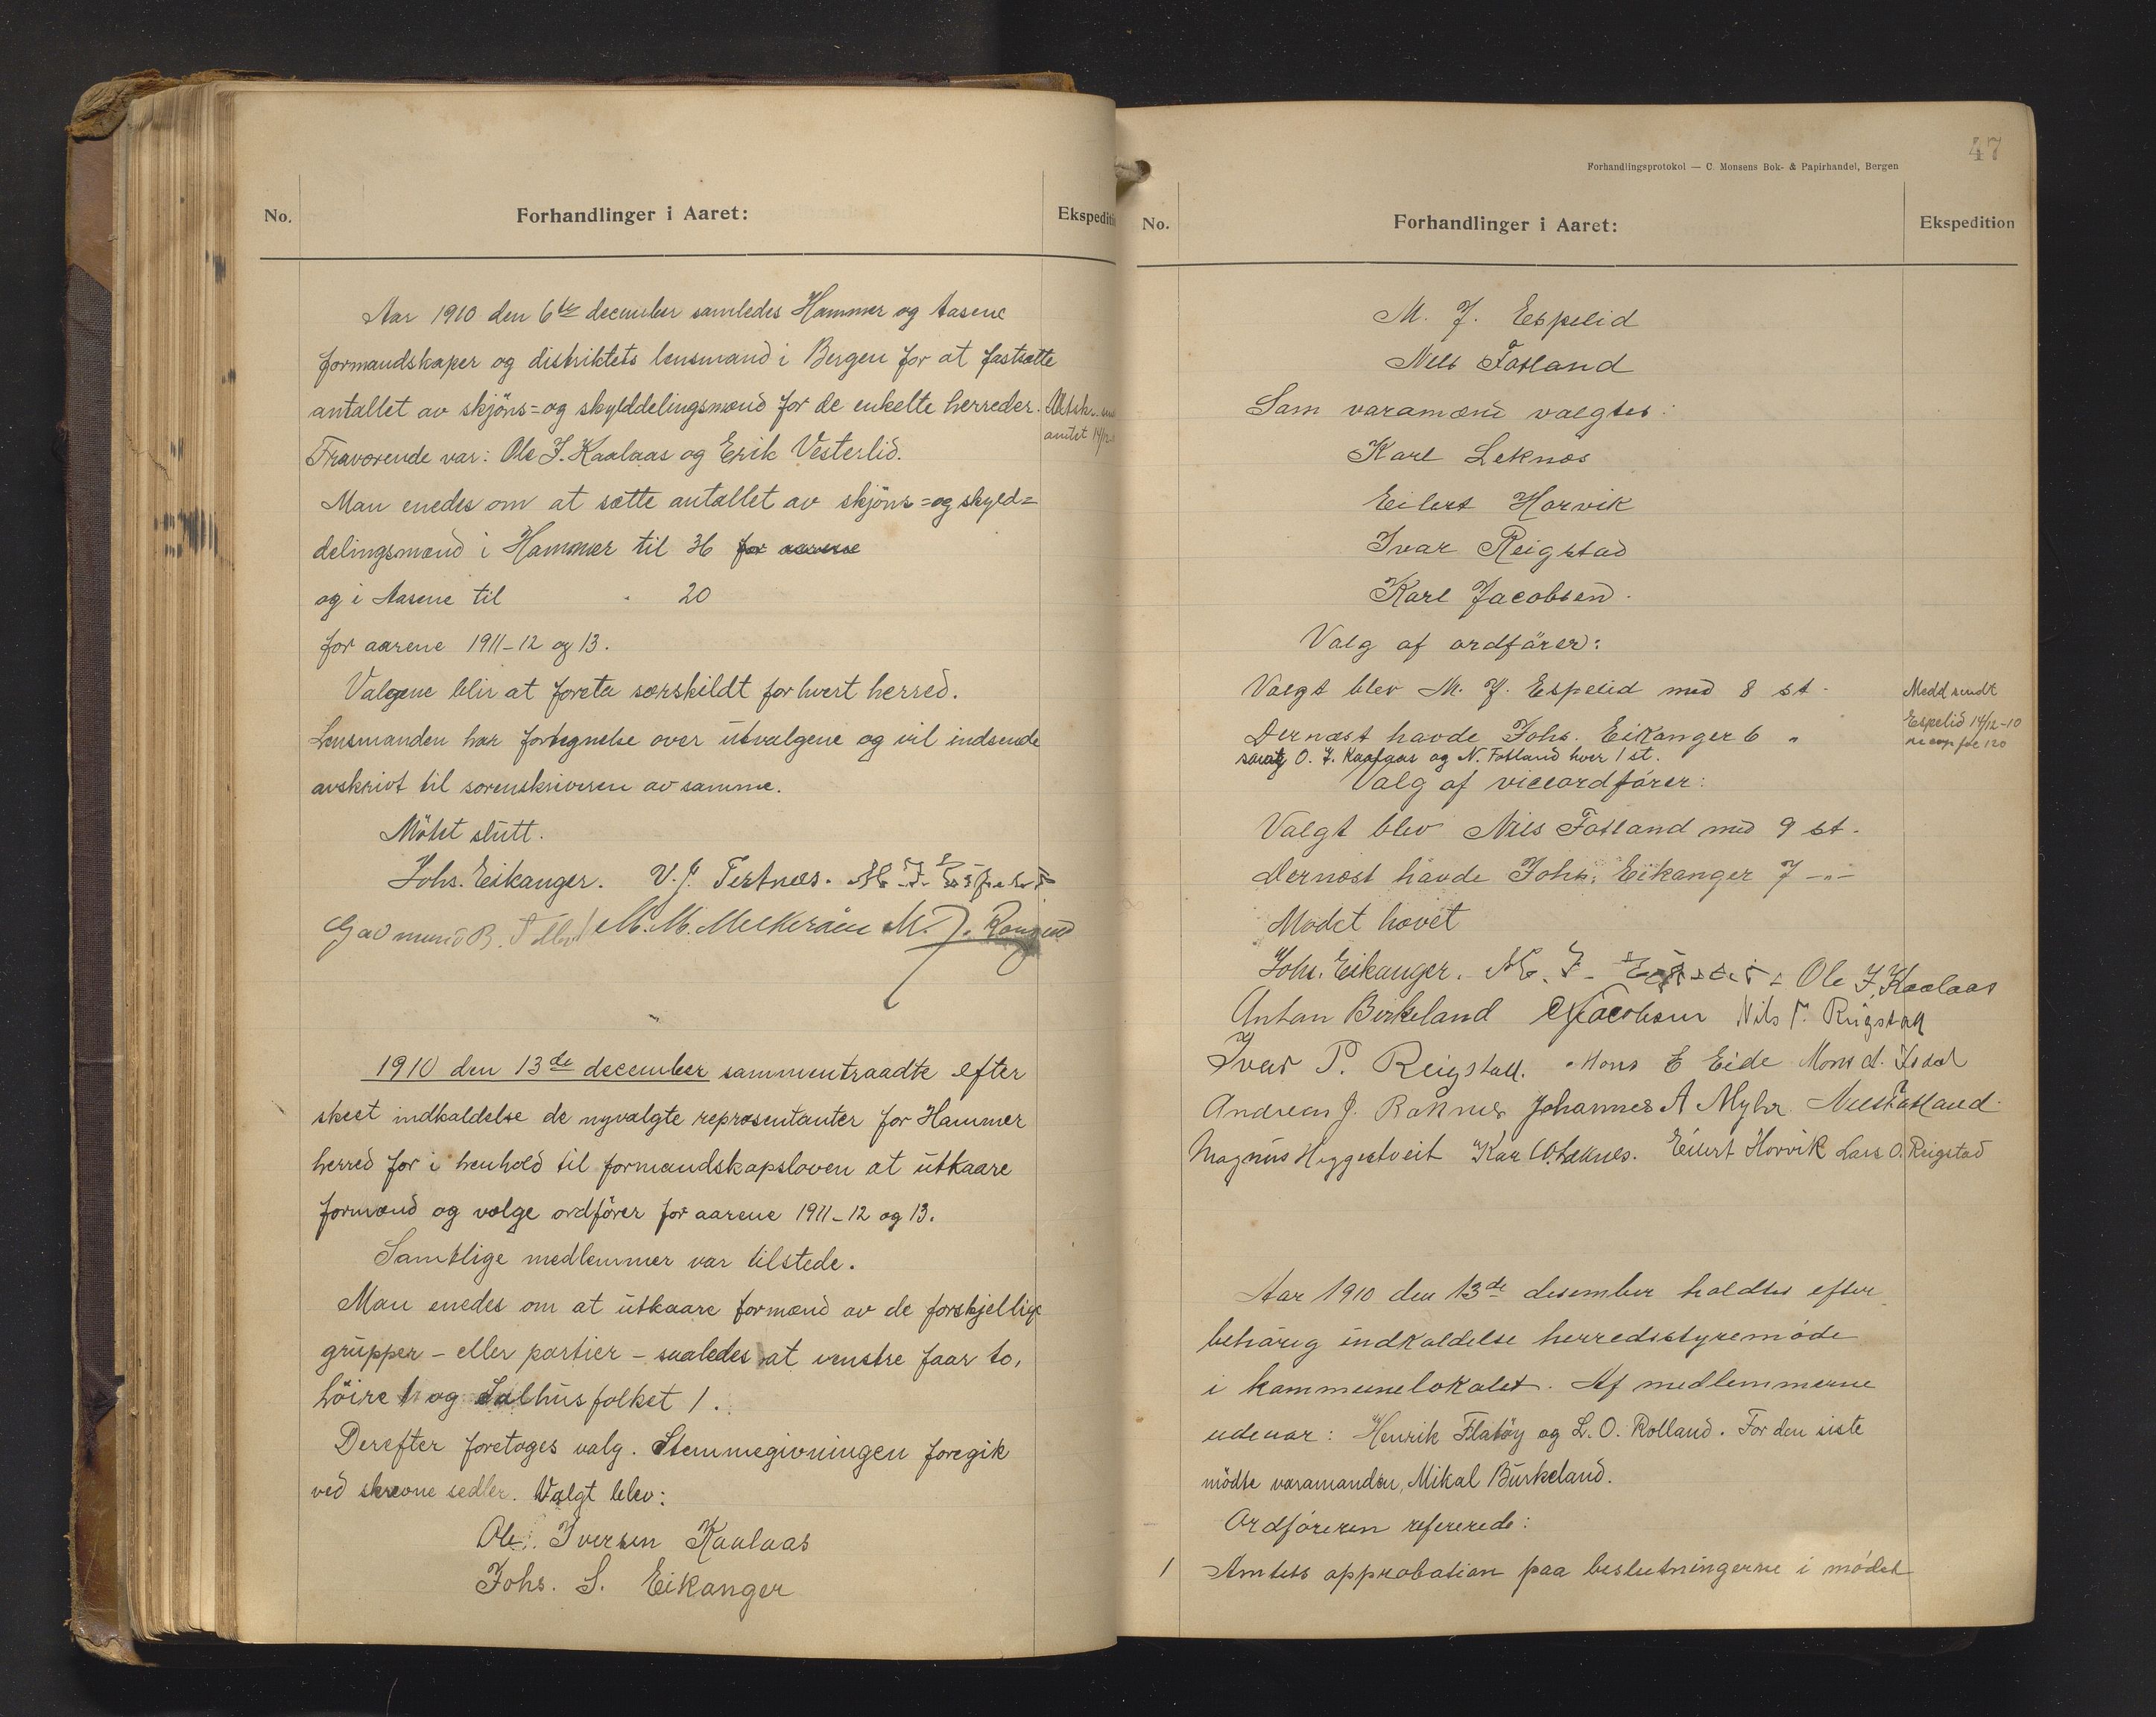 No.
Forhandlinger i Aaret:
Ekspediti
Aar 1910 den 6te december samledes Hammer og Aasene
formandskaper og distriktets lensmand i Bergen for at fastsætte
antallet av skjöns= og skylddelingsmænd for de enkelte herreder.
Utsk. send
amtet 14/12
Fraværende var: Ole I. Kaalaas og Erik Vesterlid.
Man enedes om at sætte antallet av skjöns= og skyld=
delingsmænd i Hammer til 36 for aarene
og i Aasene til " 20
for aarene 1911-12 og 13.
Valgene blir at foreta særskildt for hvert herred.
Lensmanden har fortegnelse over utvalgene og vil indsende
avskrivt til sorenskriveren av samme.
Mötet slutt.
Johs. Eikanger. V. J. Tertnæs. M. J. Espelid
M. M. Melkeraaen M. J.
1910 den 13de december sammentraadte efter
skeet indkaldelse de nyvalgte representanter for Hammer
herred for i henhold til formandskapsloven at utkaare
formænd og vælge ordförer for aarene 1911-12 og 13.
Samtlige medlemmer var tilstede.
Man enedes om at utkaare formænd av de forskjellige
grupper - eller partier - saaledes at venstre faar to,
höire 1 og Salhusfolket 1.
Derefter foretoges valg. Stemmegivningen foregik
ved skrevne sedler. Valgt blev:
Ole Iversen Kaalaas
Johs. S. Eikanger
47
Forhandlingsprotokol — C. Monsens Bok- & Papirhandel, Bergen
No.
Forhandlinger i Aaret:
Ekspedition
M. J. Espelid
Nils Fotland
Som varamænd valgtes:
Karl Leknes
Eilert Horvik
Ivar Reigstad
Karl Jacobsen.
Valg af ordfører:
Valgt blev M. J. Espelid med 8 st.
Medd sendt
Dernæst havde Johs. Eikanger 6 "
Espelid 14/12-10
samt O. I. Kaalaas og N. Fotland hver 1 st.
Valg af viceordfører:
Valgt blev Nils Fotland med 9 st.
Dernæst havde Johs. Eikanger 7 -"-
Mødet hævet
Johs. Eikanger. M. J. Espelid Ole I. Kaalaas
Anton Birkeland C Jacobsen Nils J. Reigstad
Ivar P. Reigstad. Mons E Eide Mons A. Isdal
Andreas J. Raknes Johannes A Myhr Nils Fotland
Magnus Heggestveit Karl O. Leknes. Eilert Horvik Lars O. Reigstad
Aar 1910 den 13de desember holdtes efter
behørig indkaldelse herredsstyremøde
i kommunelokalet. Af medlemmerne
udevar: Henrik Flatöy og L. O. Rolland. For den siste
mödte varamanden, Mikal Burkeland.
Ordføreren refererede:
1 Amtets approbation paa beslutningerne i mødet